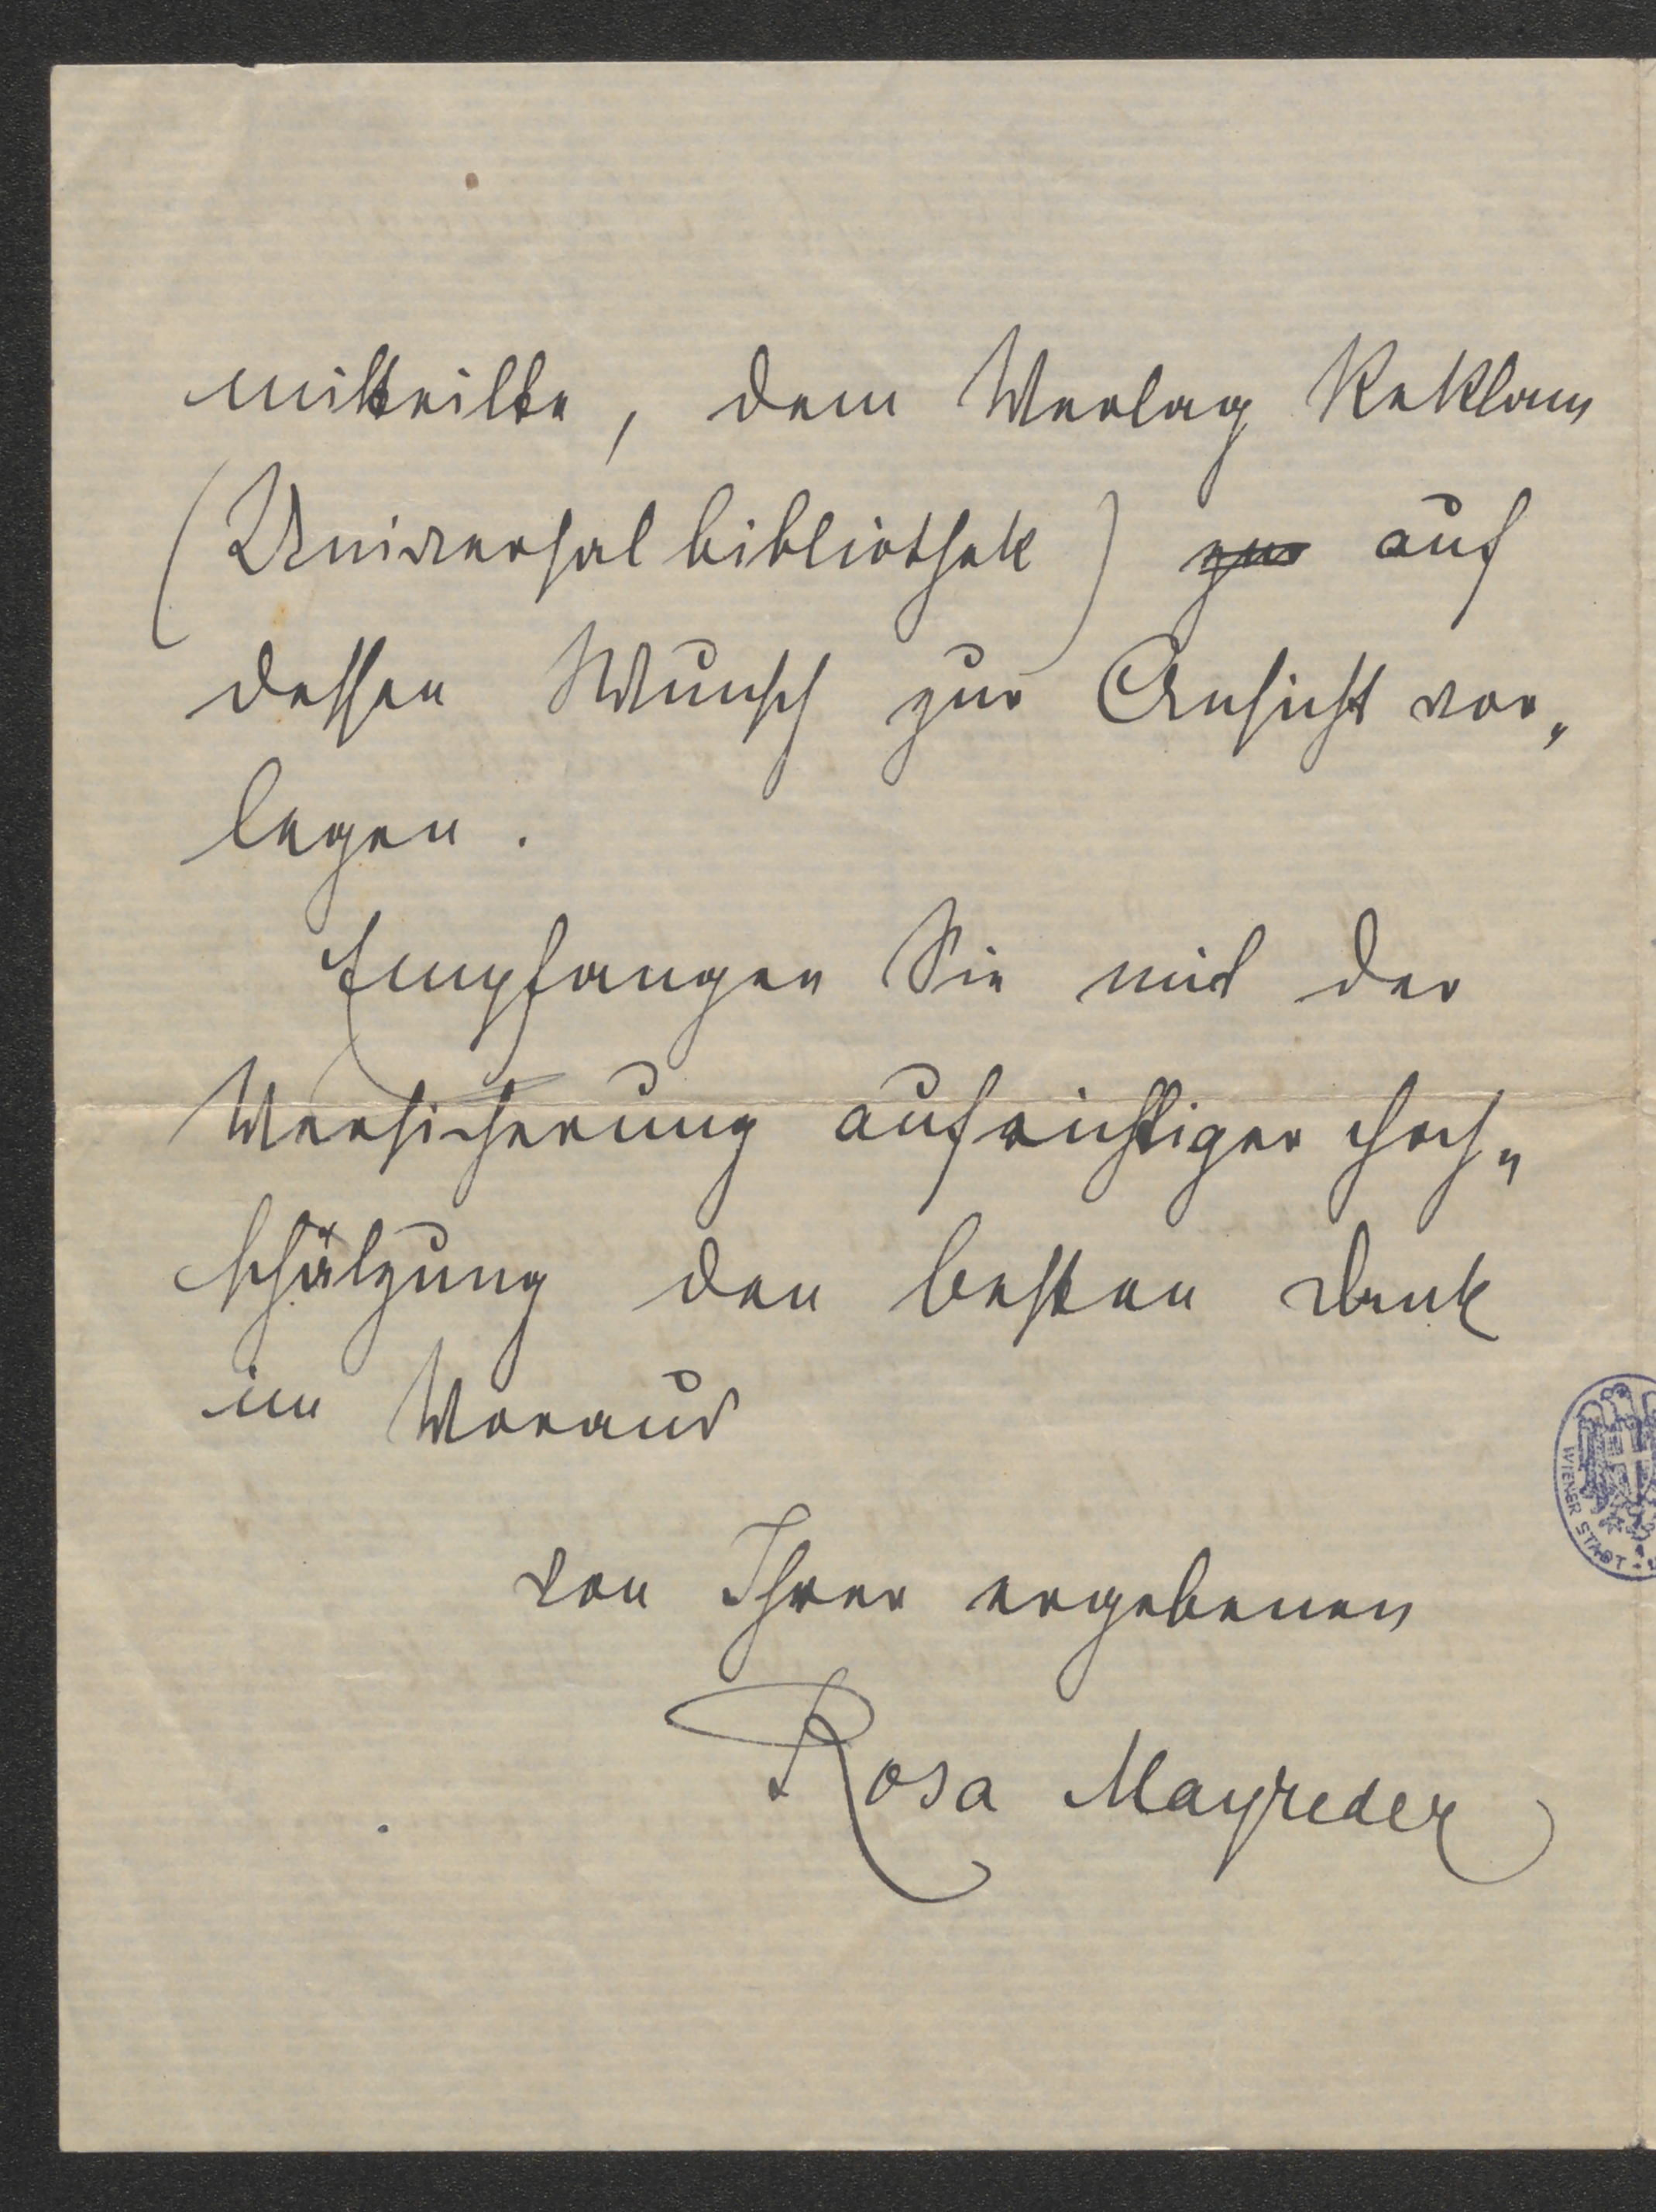 mitteilte, dem Verlag Reklam
(Universalbibliothek) zur auf
dessen Wunsch zur Ansicht vor„
legen.
Empfangen Sie mit der
Versicherung aufrichtiger Hoch„
schätzung den besten Dank
im Voraus
von Ihrer ergebenen
Rosa Mayreder
WIENER STADT